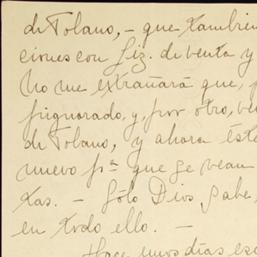 de Tolano, - que también
ciones con liz. de venta y
no me extrañará que, p
pignorado, y, por otro, ve
de Tolano, y ahora éste
nuevo pª que se vean
tas. - Sólo Dios sabe,
en todo ello. -
Hace unos días es